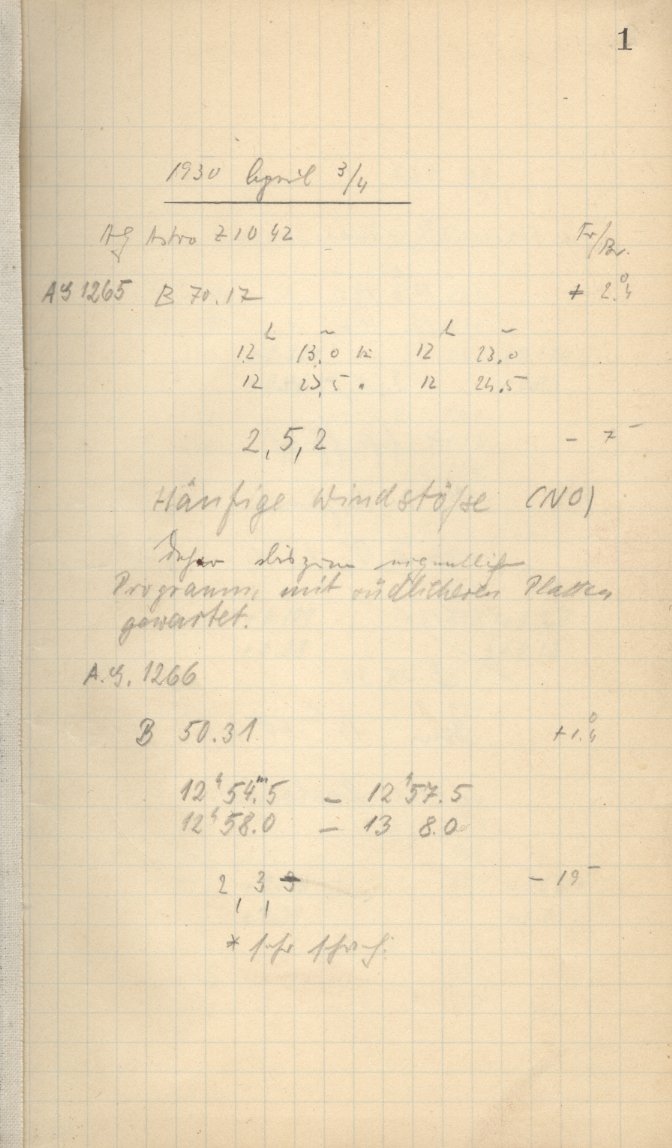 1
1930 April 3/4
AG Astro Z 1042 Fr/Br.
AG 1265 B 70.17 + 2.°4
12 h 13.0 12 h 23.0
12 23.5 12 24.5
2, 5, 2 - 7
Häufige Windstöße (NO)
Daher
Programm, mit südlicheren Platten
gewartet.
A.G. 1266
B 50.31 + 1.°4
12h 54m.5 – 12h 57.5
12h 58.0 – 13 8.0
2, 3, 3 - 19
* sehr schwach.